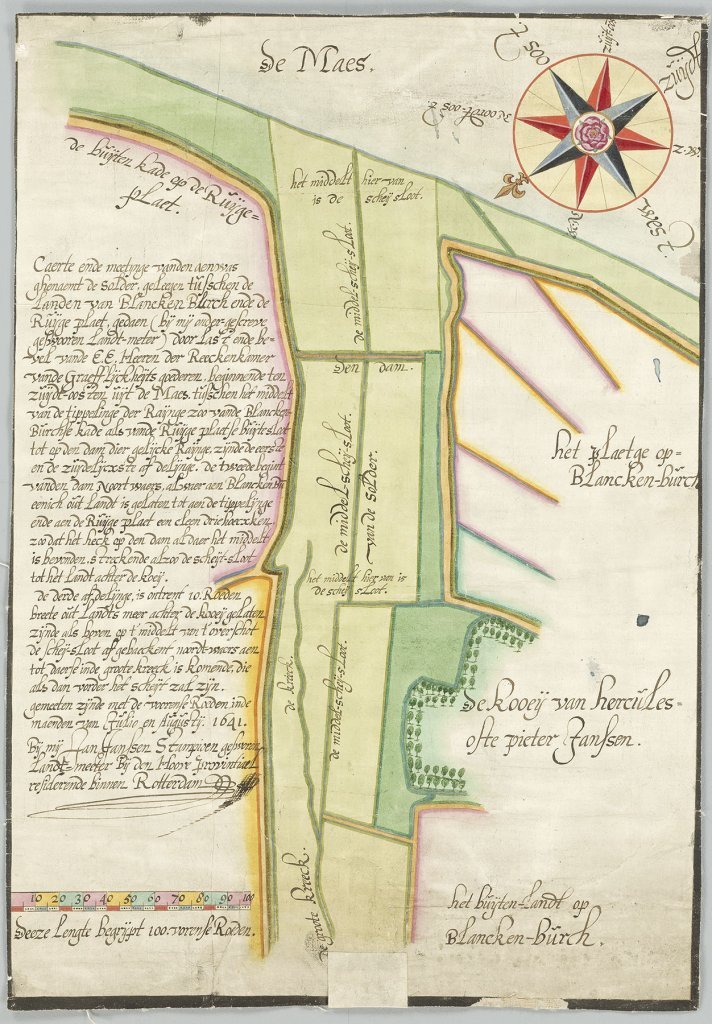 De Maes.
oost.
zuijt-oost
zuijt
z.w.
west.
Noordt-oost
de buijten kade op de Ruijge=
plaet.
het middelt hier-van
is de scheij sloot.
de middel-scheij-sloot.
Caerte ende meetinge vanden aenwas
ghenaemt de Solder, geleegen tusschen de
Landen van Blancken Burch ende de
Ruijge plaet, gedaen (bij mij onder-geschreve
geswooren Landt-meter) door Last ende be-
vel vande E.E. Heeren der Reeckenkamer
vande Graefflijckheijts goederen, beginnende ten
zuijdt-oosten uijt de Maes tusschen het middelt
van de tippelinge der Raijnge zoo vande Blancken-
Burchse kade als vande Ruijge plaetse buijte sloot
tot op den dam dier gelijcke Raijnge, zijnde de eerste
en de zuijdelijcxste afdelinge. de tweede begint
vanden dam Noortwaers, alwaer aen Blancken Bu
eenich out Landt is gelaten tot aen de tippelijnge
ende aen de Ruijge plaet een cleen driehoecxken
zoo dat het heck op den dam aldaer het middelt
is bevonden, streckende alzoo de scheijt-sloot
tot het Landt achter de koeij.
de derde afdelinge, is ontrent 10. Roeden
breete out Landts meer achter de kooeij gelaten
zijnde als boven op t middelt van t overschot
de scheij-sloot afgebaeckent, noordtwars aen
tot daerse inde groote kreeck is komende, die
als dan vorder het scheijt zal zijn.
gemeeten zijnde met de voorense Roeden inde
maenden van Julio en Augustij. 1641.
Bij mij Jan Janssen Stampioen geswooren
Landt-meeter Bij den Hoove provintiael
residerende binnen Rotterdam
den dam.
de middel-scheij-sloot.
van de solder.
het middelt hier van is
de scheij sloot.
de middel-scheij-sloot.
de kreeck.
de groote kreeck.
het plaetge op=
Blancken-burch
De kooeij van hercules=
ofte pieter Janssen.
het buijten-Landt op
Blancken-burch.
10 20 30 40 50 60 70 80 90 100
Deeze Lengte begrijpt 100 vorense Roeden.